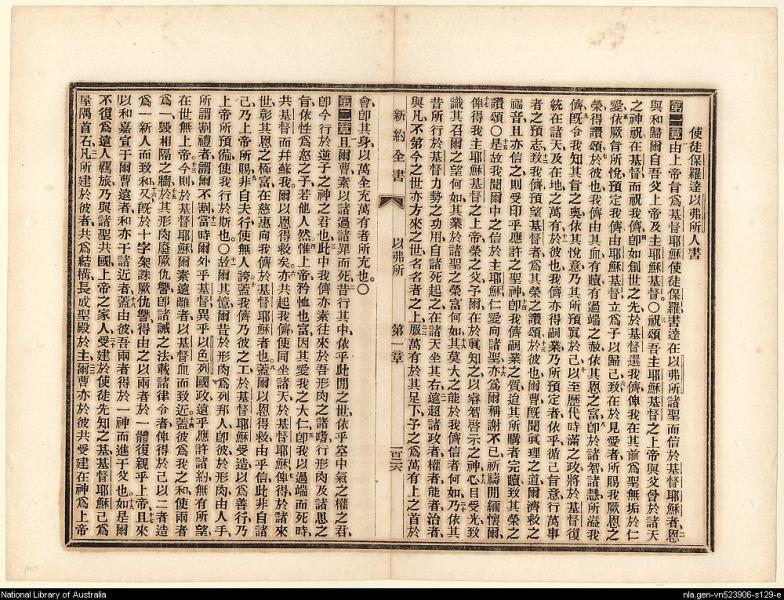 使徒保羅達以弗所人書
第一章由上帝旨爲基督耶穌使徒保羅書達在以弗所諸聖而信於基督耶穌者恩
與和歸爾自吾父上帝及主耶穌基督○祝頌吾主耶穌基督之上帝與父曾於諸天
之神祝在基督而祝我儕卽如創世之先於基督選我儕俾我在其前爲聖無垢於仁
愛依厥旨所悅預定我儕由耶穌基督立爲子以歸己致在於見愛者所賜我厥恩之
榮得讚頌於彼也我儕由其血有贖有過端之赦依其恩之富卽於諸智諸慧所溢我
儕旣令我知其旨之奧依其悅意乃其所預寘於己以至歷代時滿之政將於基督復
統在諸天及在地之萬有於彼也我儕亦得嗣業乃所預定者依乎循己旨意行萬事
者之預志致我儕預望基督者爲其榮之讚頌於彼也爾曹旣聞眞理之道爾濟救之
福音且亦信之則受印乎應許之聖神卽我儕嗣業之質迨其所購者完贖致其榮之
讚頌○是故我聞爾中之信於主耶穌仁愛向諸聖亦爲爾稱謝不已祈禱間緬懷爾
俾得我主耶穌基督之上帝榮之父予爾在於眞知之以睿智啓示之神心目受光致
識其召爾之望何如其業於諸聖之榮富何如其莫大之能於我儕信者何如乃依其
昔所行於基督力勢之功用自諸死起之在諸天坐其右遠超諸政者權者能者治者
與凡不第今之世亦方來之世者名者之上服萬有於其足下予之爲萬有上之首於
新約全書 以弗所 第一章 一百二六
會卽其身以萬全充萬有者所充也○
第二章且爾曹素以諸過諸罪而死昔行其中依乎此間之世依乎空中氣之權之君
卽今行於逆子之神之君也此中我儕亦素往來於吾形肉之諸嗜行形肉及諸思之
旨依性爲怒之子若他人然惟上帝矜恤也富因其愛我之大仁卽我以過端而死時
共基督而幷蘇我爾以恩得救矣亦共起我儕使同坐諸天於基督耶穌俾得於諸來
世彰其恩之極富在慈惠向我儕於基督耶穌者也蓋爾以恩得救由乎信此非自諸
己乃上帝所賜非自夫行使無人誇蓋我儕乃彼之工於基督耶穌受造以爲善行乃
上帝所預備使我行於斯也○故爾其憶爾昔於形肉爲列邦人卽彼於形肉由人手
所謂割禮者謂爾不割當時爾外乎基督異乎以色列國政遠乎應許諸約無有所望
在世無上帝今則於基督耶穌爾素遠離者以基督血而致近蓋彼爲我之和使兩者
爲一毀相隔之牆於其形肉廢厥仇讐卽諸誡之法載諸律令者俾得於己以二者造
爲一新人而致和又旣於十字架誅厥仇讐得由之以兩者於一體復親乎上帝且來
以和嘉宣于爾曹遠者和亦于諸近者蓋由彼吾兩者得於一神而進于父也如是爾
不復爲遠人羈旅乃與諸聖共國上帝之家人受建於使徒先知之基基督耶穌己爲
屋隅首石凡所建於彼者共爲結構長成聖殿於主爾曹亦於彼共受建在神爲上帝
National Library of Australia
nla.gen-vn523906-s129-e